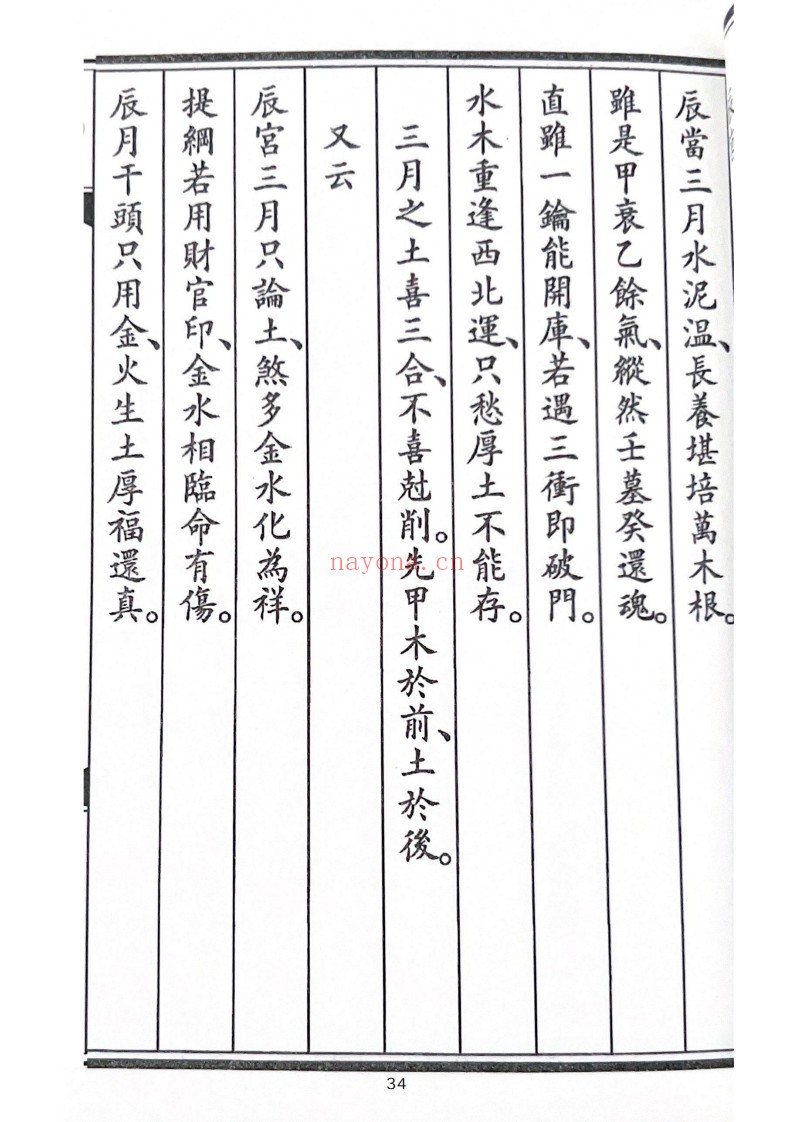 辰當三月水泥溫、長養堪培萬木根。
雖是甲衰乙餘氣、縱然壬墓癸還魂。
直雖一鑰能開庫、若遇三衝即破門。
水木重逢西北運、只愁厚土不能存。
三月之土喜三合、不喜尅削。先甲木於前、土於後。
又云
辰宮三月只論土、煞多金水化為祥。
提綱若用財官印、金水相臨命有傷。
辰月干頭只用金、火生土厚福還真。
nayona.cn
34